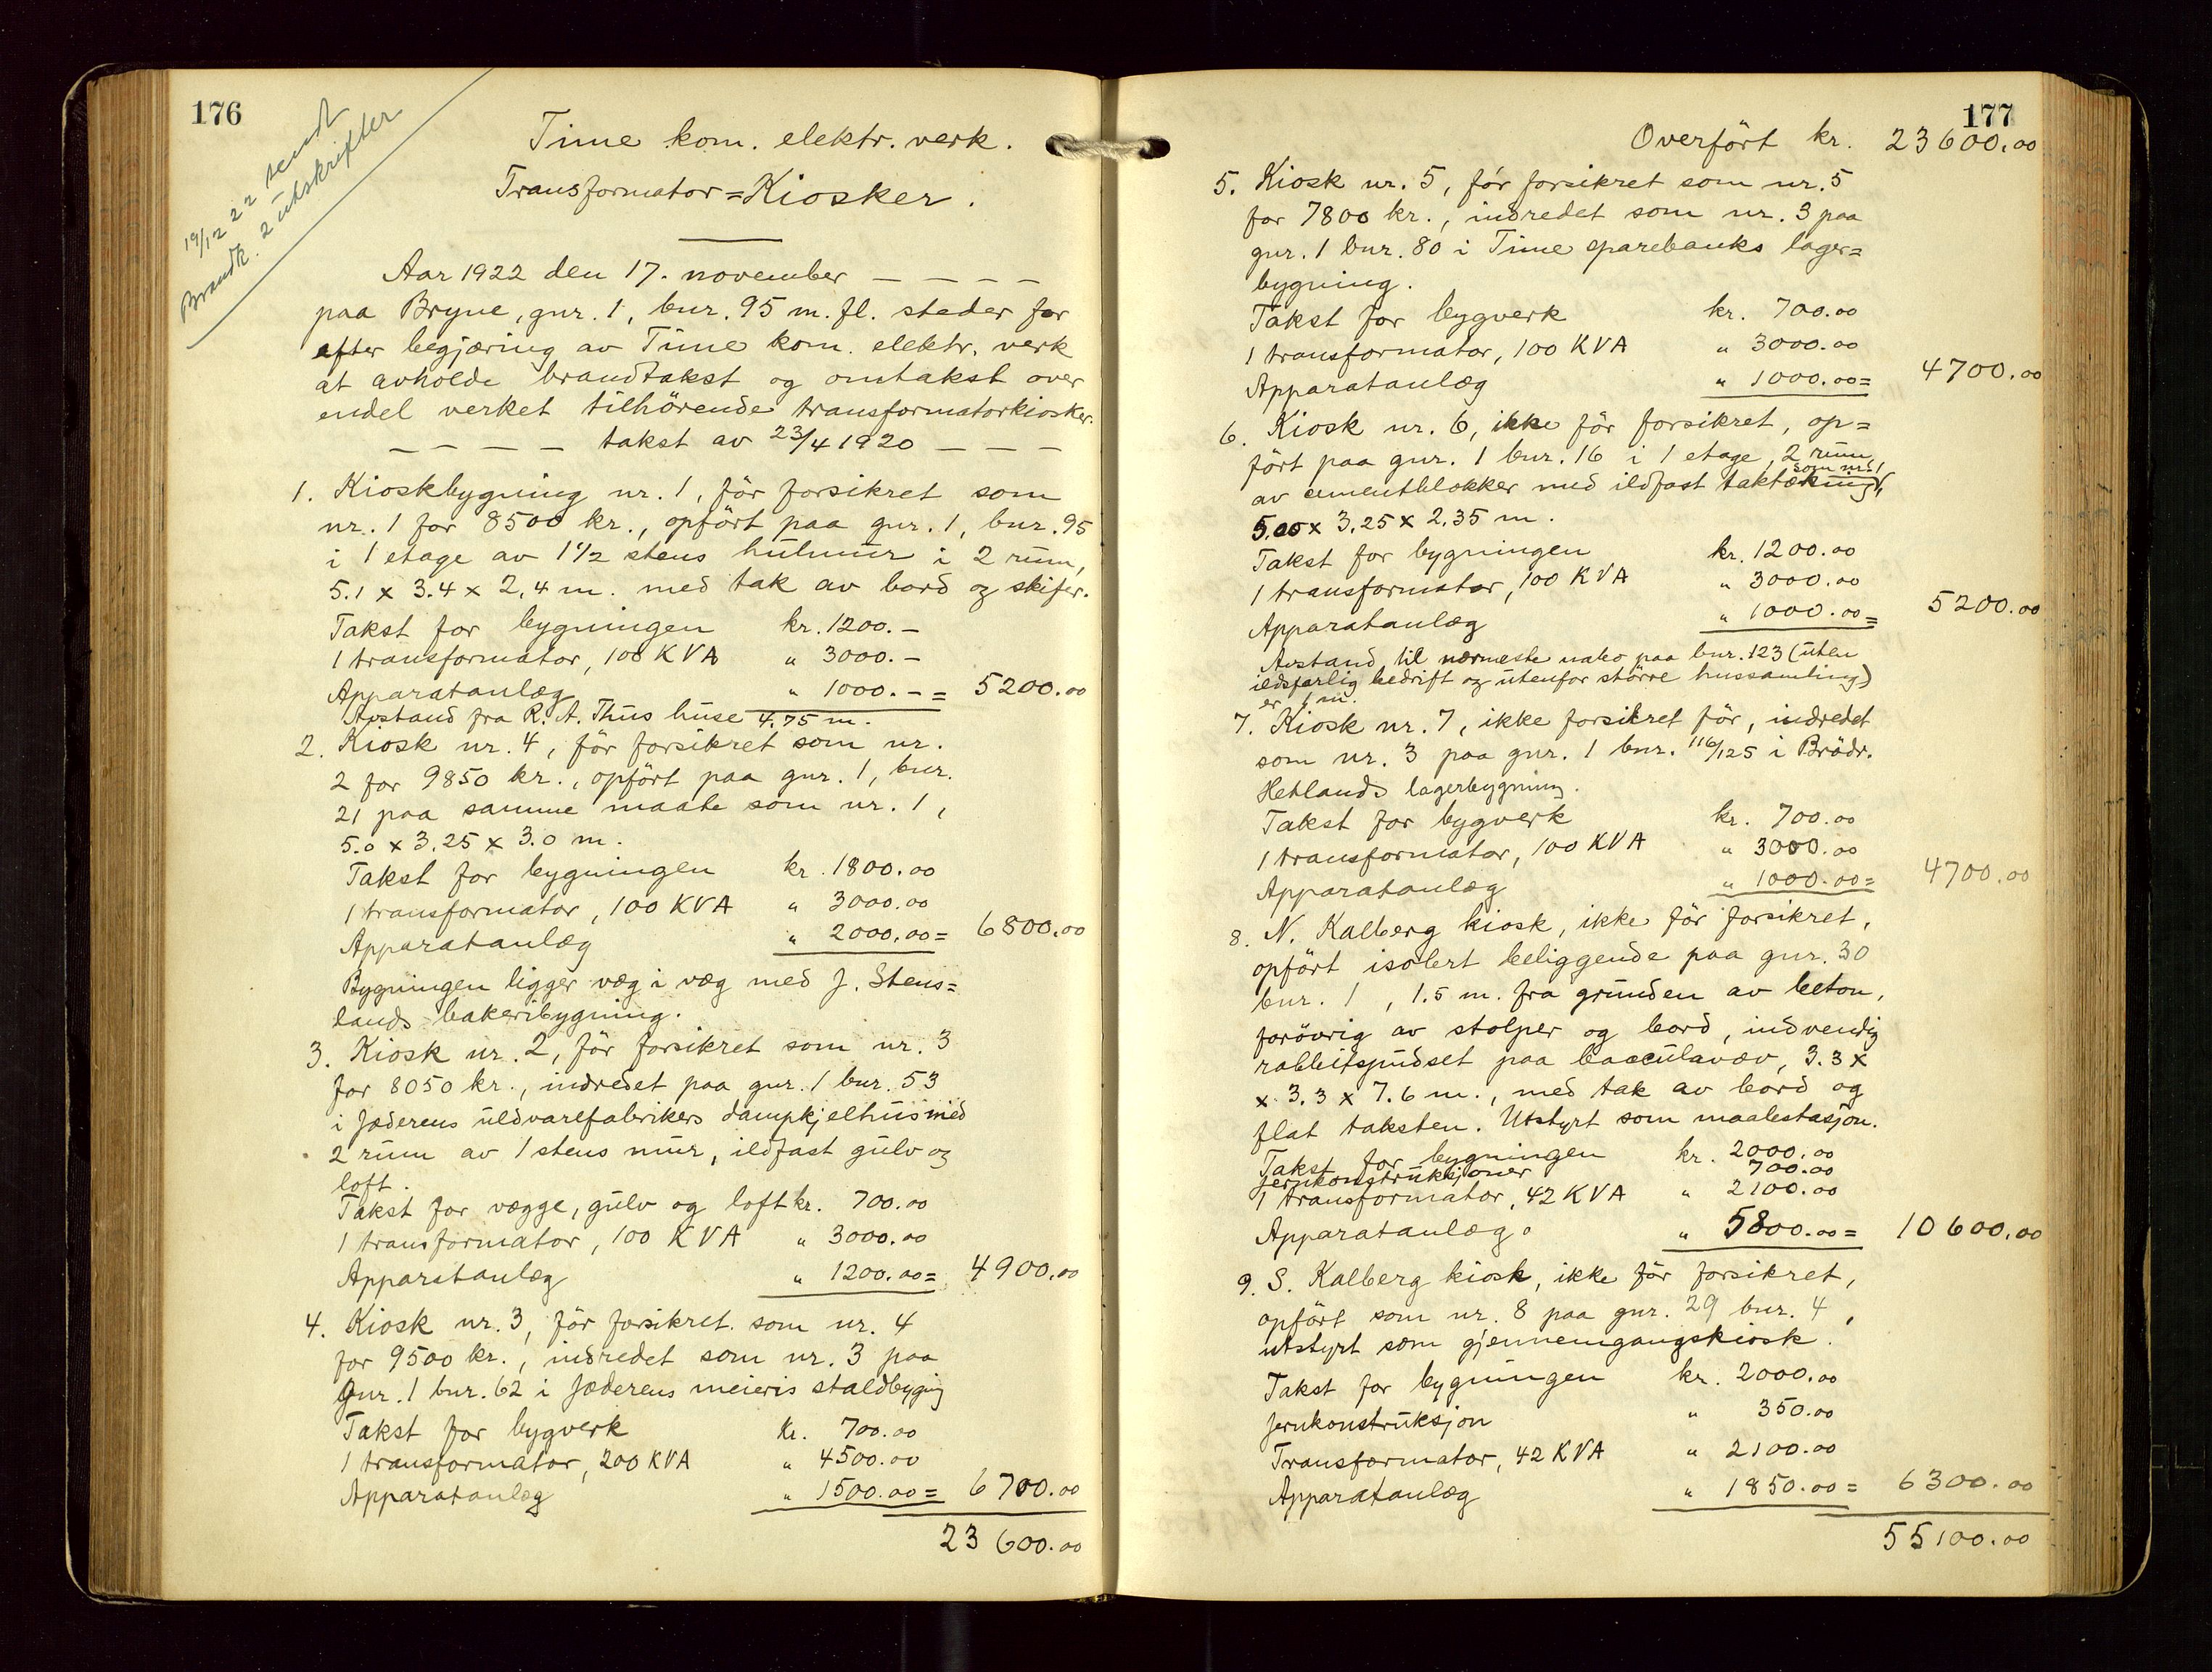 176
19/12 22 sendt
Brandk. 2 utskrifter
Time kom. elektr. verk.
Transformator=Kiosker.
Aar 1922 den 17. november – – – –
paa Bryne, gnr. 1, bnr. 95 m. fl. steder for
efter begjæring av Time kom. elektr. verk
at avholde brandtakst og omtakst over
endel verket tilhörende transformatorkiosker.
– – – – takst av 23/4 1920 – – –
1. Kioskbygning nr. 1, för forsikret som
nr. 1 for 8500 kr., opfört paa gnr. 1, bnr. 95
i 1 etage av 1 1/2 stens hulmur i 2 rum,
5.1 x 3.4 x 2,4 m. med tak av bord og skifer.
Takst for bygningen kr. 1200.–
1 transformator, 100 KVA " 3000.–
Apparatanlæg " 1000.– = 5200.00
Avstand fra R. A. Thus huse 4.75 m.
2. Kiosk nr. 4, för forsikret som nr.
2 for 9850 kr., opfört paa gnr. 1, bnr.
21 paa samme maate som nr. 1,
5.0 x 3.25 x 3.0 m.
Takst for bygningen kr. 1800.00
1 transformator, 100 KVA " 3000.00
Apparatanlæg " 2000.00 = 6800.00
Bygningen ligger væg i væg med J. Stens=
lands bakeribygning.
3. Kiosk nr. 2, för forsikret som nr. 3
for 8050 kr., indredet paa gnr. 1 bnr. 53
i Jæderens uldvarefabrikers dampkjelhus med
2 rum av 1 stens mur, ildfast gulv og
loft.
Takst for vægge, gulv og loft kr. 700.00
1 transformator, 100 KVA " 3000.00
Apparatanlæg " 1200.00 = 4900.00
4. Kiosk nr. 3, för forsikret som nr. 4
for 9500 kr., indredet som nr. 3 paa
gnr. 1 bnr. 62 i Jæderens meieris staldbygnig
Takst for bygverk kr. 700.00
1 transformator, 200 KVA " 4500.00
Apparatanlæg " 1500.00 = 6700.00
23 600.00
177
Overfört kr. 23600.00
5. Kiosk nr. 5, för forsikret som nr. 5
for 7800 kr., indredet som nr. 3 paa
gnr. 1 bnr. 80 i Time sparebanks lager=
bygning.
Takst for bygverk kr. 700.00
1 transformator, 100 KVA " 3000.00
Apparatanlæg " 1000.00 = 4700.00
6. Kiosk nr. 6, ikke för forsikret, op=
fört paa gnr. 1 bnr. 16 i 1 etage, 2 rum,
som nr. 1
av cementblokker med ildfast taktækning,
5.00 x 3.25 x 2.35 m.
Takst for bygningen kr. 1200.00
1 transformator, 100 KVA " 3000.00
Apparatanlæg " 1000.00 = 5200.00
Avstand til nærmeste nabo paa bnr. 123 (uten
ildsfarlig bedrift og utenfor större hussamling)
er 1 m.
7. Kiosk nr. 7, ikke forsikret för, indredet
som nr. 3 paa gnr. 1 bnr. 116/125 i Brödr.
Hetlands lagerbygning.
Takst for bygverk kr. 700.00
1 transformator, 100 KVA " 3000.00
Apparatanlæg " 1000.00 = 4700.00
8. N. Kalberg kiosk, ikke för forsikret,
opfört isolert beliggende paa gnr. 30
bnr. 1, 1.5 m. fra grunden av beton,
forövrig av stolper og bord, indvendig
rabbeitspudset paa baculavæv, 3.3 x
x 3.3 x 7.6 m., med tak av bord og
flat taksten. Utstyrt som maalestasjon.
Takst for bygningen kr. 2000.00
Jernkonstruksjoner 700.00
1 transformator, 42 KVA " 2100.00
Apparatanlæg. " 5800.00 = 10600.00
9. S. Kalberg kiosk, ikke för forsikret,
opfört som nr. 8 paa gnr. 29 bnr. 4,
utstyrt som gjennemgangskiosk.
Takst for bygningen kr. 2000.00
Jernkonstruksjon " 350.00
Transformator, 42 KVA " 2100.00
Apparatanlæg " 1850.00 = 6300.00
55100.00